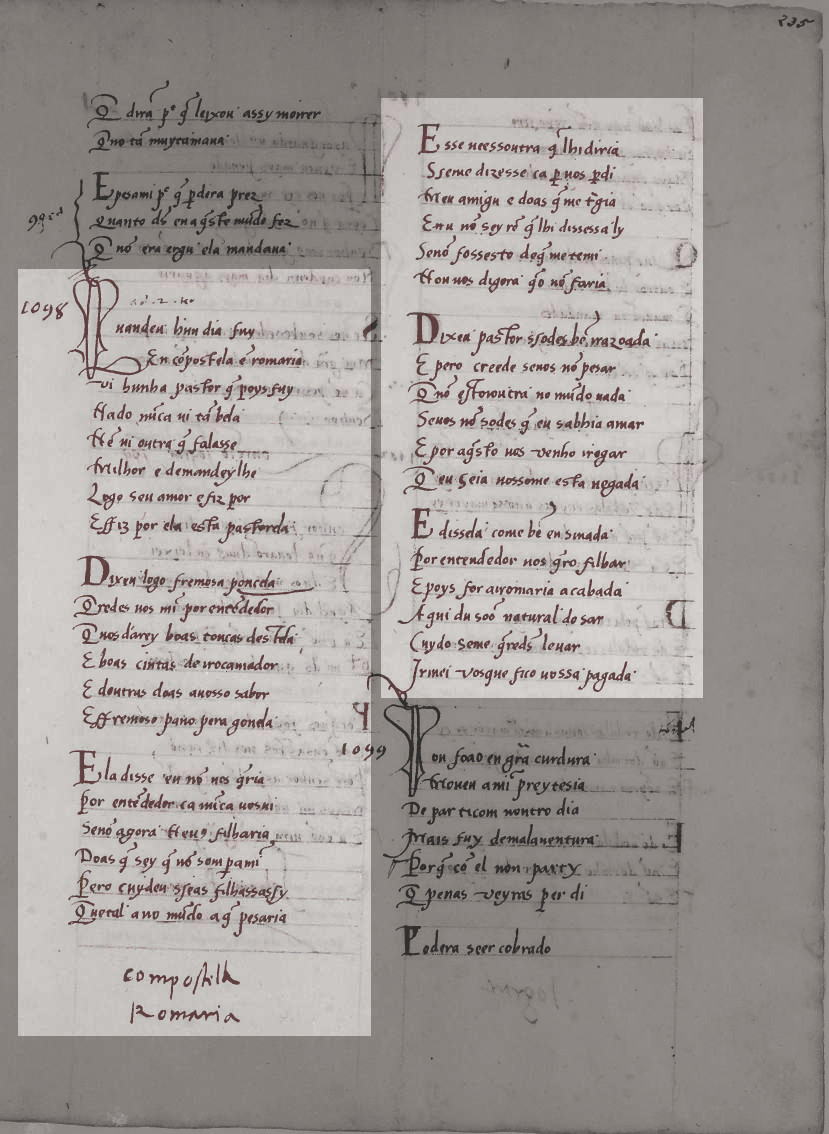 235
Q̃ dirã pº q̃ leixou assy moirer
Q̃no tã muytamaua
E pesami pº q̃ p̃dera prez
Quanto d̃s en aq̃ste mũdo fez
Q̃ nõ era ergu ela mandaua
1098
Quandeu hun dia fuy
En cõpostela ẽ romaria
Vi hunha pastor q̃ poys fuy
Nado nũca ui tã bela
Nẽ ui outra q̃ falasse
Milhor e demandeylhe
Logo seu amor e fiz por
E ffiz por ela esta pastorela
Dixeu logo fremosa poncela
Q̃redes uos mĩ por entẽdedor
Q̃ uos darey boas toucas destela
E boas cintas de rrocamador
E doutras doas auosso sabor
E ffremoso pano pera gonela
Ela disse eu nõ uos q̃ria
Por entẽdedor ca nũca uos ui
Senõ agora nen uꝯ filharia
Doas q̃ sey q̃ nõ som pami
Pero cuydeu sseas filhassassy
Que tal a no mũdo a q̃ pesaria
compostella
Romaria
E sse ueessoutra q̃ lhi diria
Sseme dizesse ca p̱ uos p̱di
Meu amigu e doas q̃ me tragia
E nu nõ sey rẽ q̃ lhi dissessa ly
Senõ fossesto de q̃ me temi
Non uos digora q̃o nõ faria
Dixeu pastor ssodes bẽ rrazoada
E pero creede seuos nõ pesar
Q̃ nõ estoutra no mũdo nada
Seuos nõ sodes q̃ eu sabbia amar
E por aq̃sto uos venho rrogar
Q̃ eu seia uossome esta uegada
E dissela come bẽ ensinada
Por entendedor uos q̃ro filhar
E poys for a rromaria acabada
Aqui du soõ natural do sar
Cuydo seme q̃reds leuar
Irmei vosque fico uossa pagada
1099
Don foao en grã curdura
Moueu a mĩ preytesia
De particom noutro dia
Mais fuy demalauentura
Porq̃ cõ el non party
Q̃ penas veyras per di
Podera seer cobrado